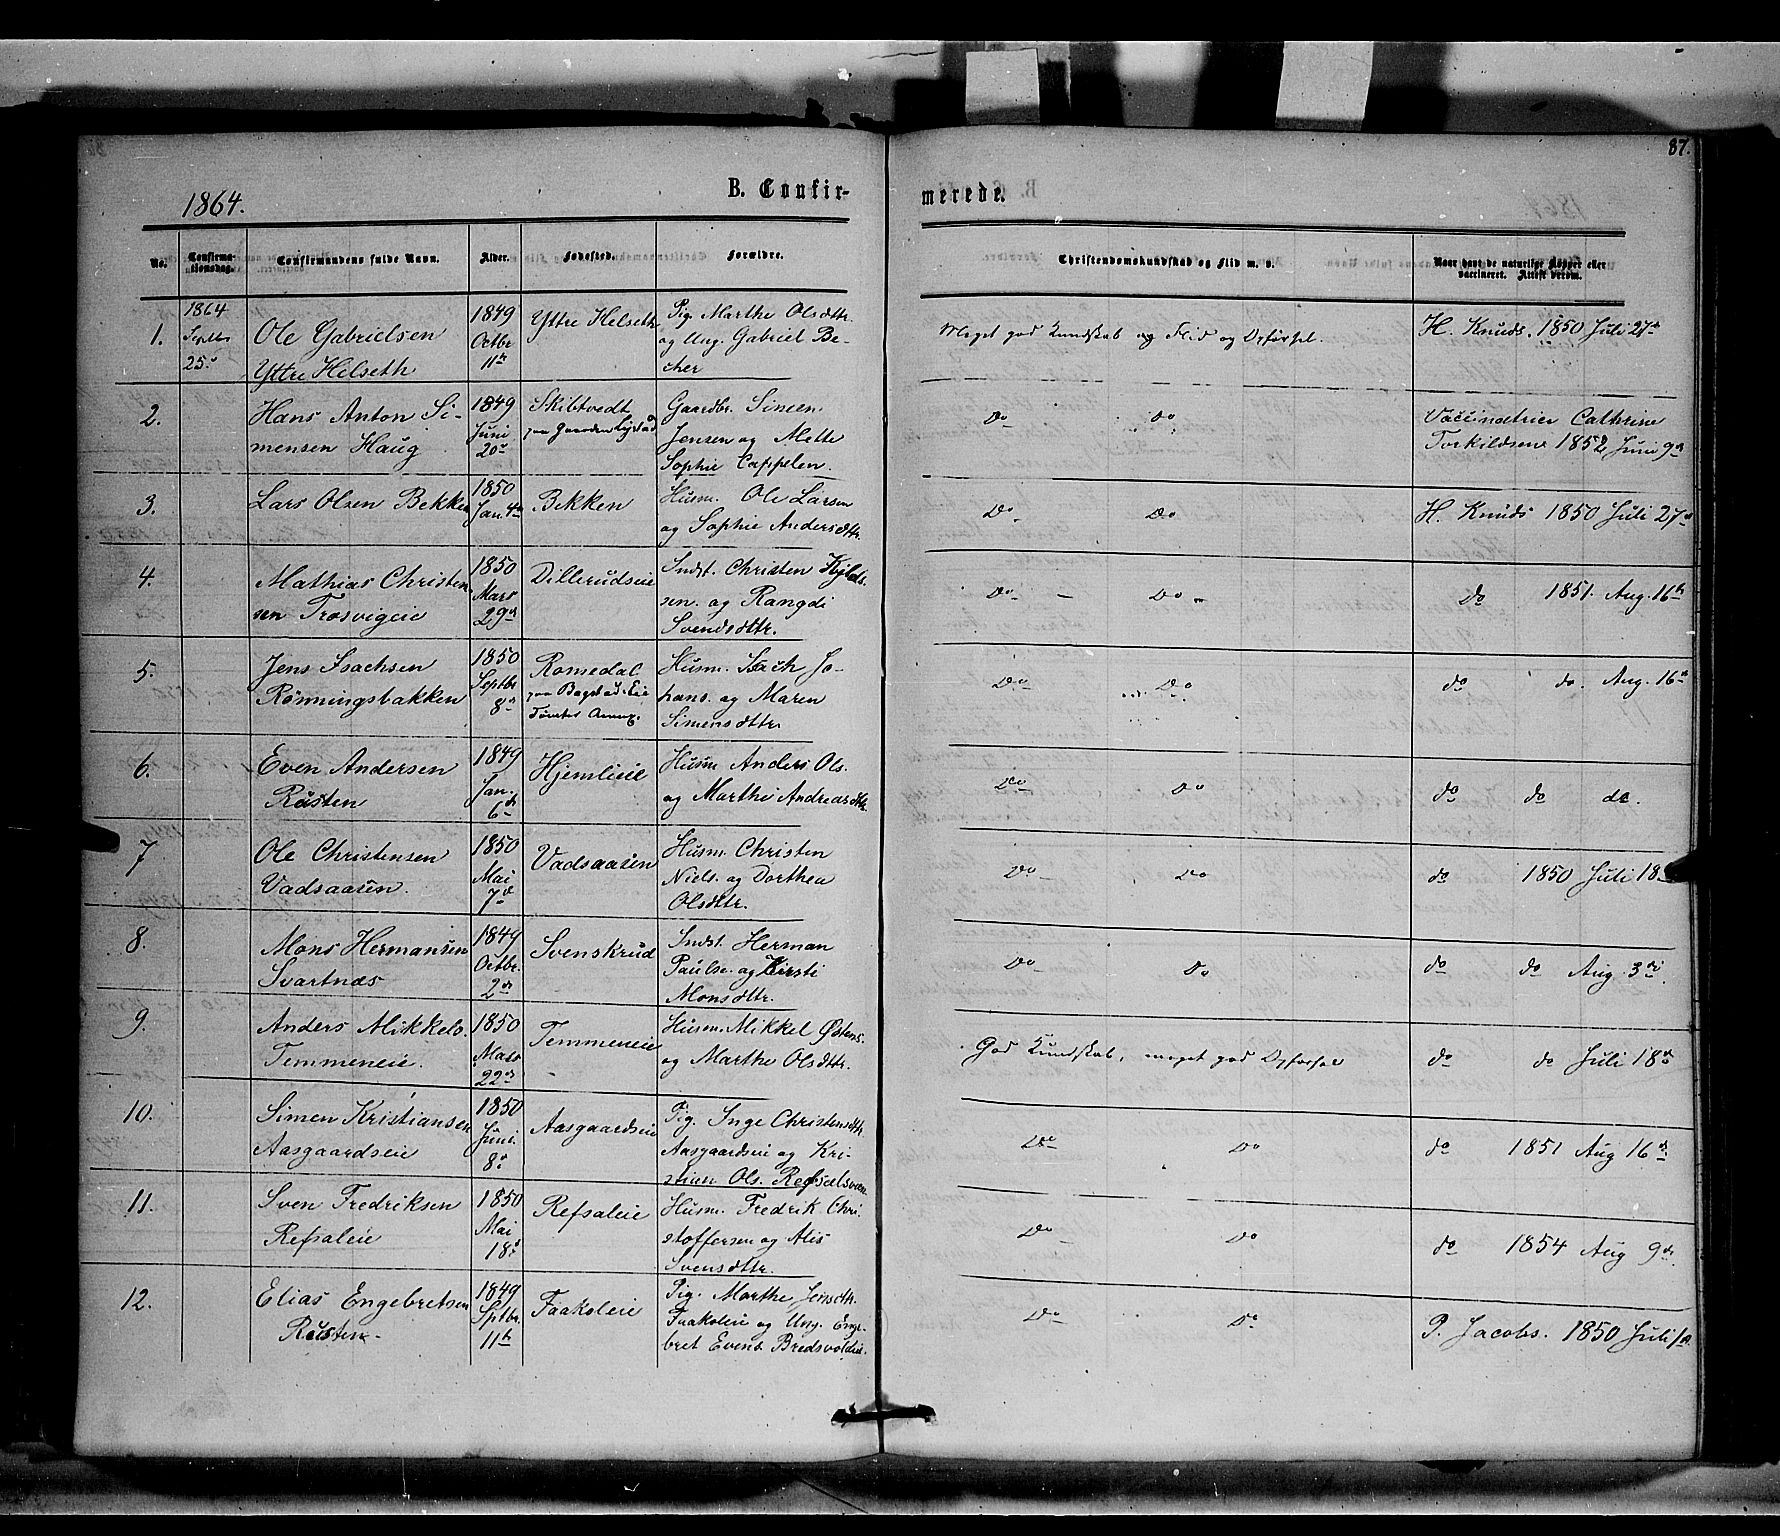 87.
1864.
B. Confir-
merede.
No.
Confirma-
tionsdag.
Confirmandens fulde Navn.
Alder.
Fødested.
Forældre.
Christendomskundskab og Flid m. v.
Naar havt de naturlige Kopper eller
vaccineret. Attest derom.
1.
1864
Septbr
25d
Ole Gabrielsen
Yttre Helseth
1849
Octbr
11te
Yttre Helseth
Pig. Marthe Olsdttr.
og Ung. Gabriel Be-
cher
Meget god Kundskab og Flid og Opførsel.
H. Knuds. 1850 Juli 27de
2.
Hans Anton Si-
mensen Haug
1849
Juni
20de
Skibtvedt
paa Gaarden
Gaardbr. Simen
Jensen og Mette
Sophie Cappelen.
Do
Do
Vaccinatrice Cathrine
Torkildsene 1852 Juni 9de
3.
Lars Olsen Bekken
1850
Jan. 4de
Bekken
Husm. Ole Larsen
og Sophie Andersdttr.
Do
Do
H. Knuds 1850 Juli 27de
4.
Mathias Christen-
sen Trosvigeie
1850
Mars
29de
Dillerudseie
Indst. Christen
sen. og Rangdi
Svendsdttr.
Do
Do
do 1851. Aug. 16de
5.
Jens Isachsen
Rönningsbakken
1850
Septbr
8de
Romedal
paa Bagstad Eie
Tomter Annex.
Husm. Isach Jo-
hans. og Maren
Simensdttr.
Do
Do
do do. Aug. 16de
6.
Even Andersen
Rusten
1849
Jan.
6te
Hjemlieie
Husm Anders Ols.
og Marthe Andreasdttr.
Do
Do
do do do.
7
Ole Christensen
Vadsaasen.
1850
Mai
7de
Vadsaasen
Husm. Christen
Niels. og Dorthea
Olsdttr.
Do
Do
do 1850 Juli 18
8.
Mons Hermansen
Svartnæs
1849
Octbr.
2den
Svenskrud
Indst. Herman
Pauls. og Kirsti
Monsdttr.
Do
Do
do do Aug. 3de
9.
Anders Mikkels.
Temmeneie.
1850
Mars
22de
Temmeneie
Husm. Mikkel Østens.
og Marthe Olsdttr.
God Kundskab, meget god Opførsel
do do Juli 18de
10.
Simen Kristiansen
Aasgaardseie
1850
Juni.
8de
Aasgaardseie
Pig. Inge Christensdttr.
Aasgaardseie og Kri-
stian Ols. Refsalsveen
Do
Do
do 1851 Aug 16de
11.
Sven Fredriksen
Refsaleie
1850
Mai
18de
Refsaleie
Husm. Fredrik Chri
stoffersen og Alis
Svensdttr.
Do
Do
do 1854 Aug 9de
12.
Elias Engebretsen
Rusten
1849
Sptbr.
11te
Faakoleie
Pig. Marthe Jensdttr.
Faakoleie og Ung. Enge-
bret Evens. Bredsvoldeie.
Do
Do
P. Jacobs. 1850 Juli 1ste